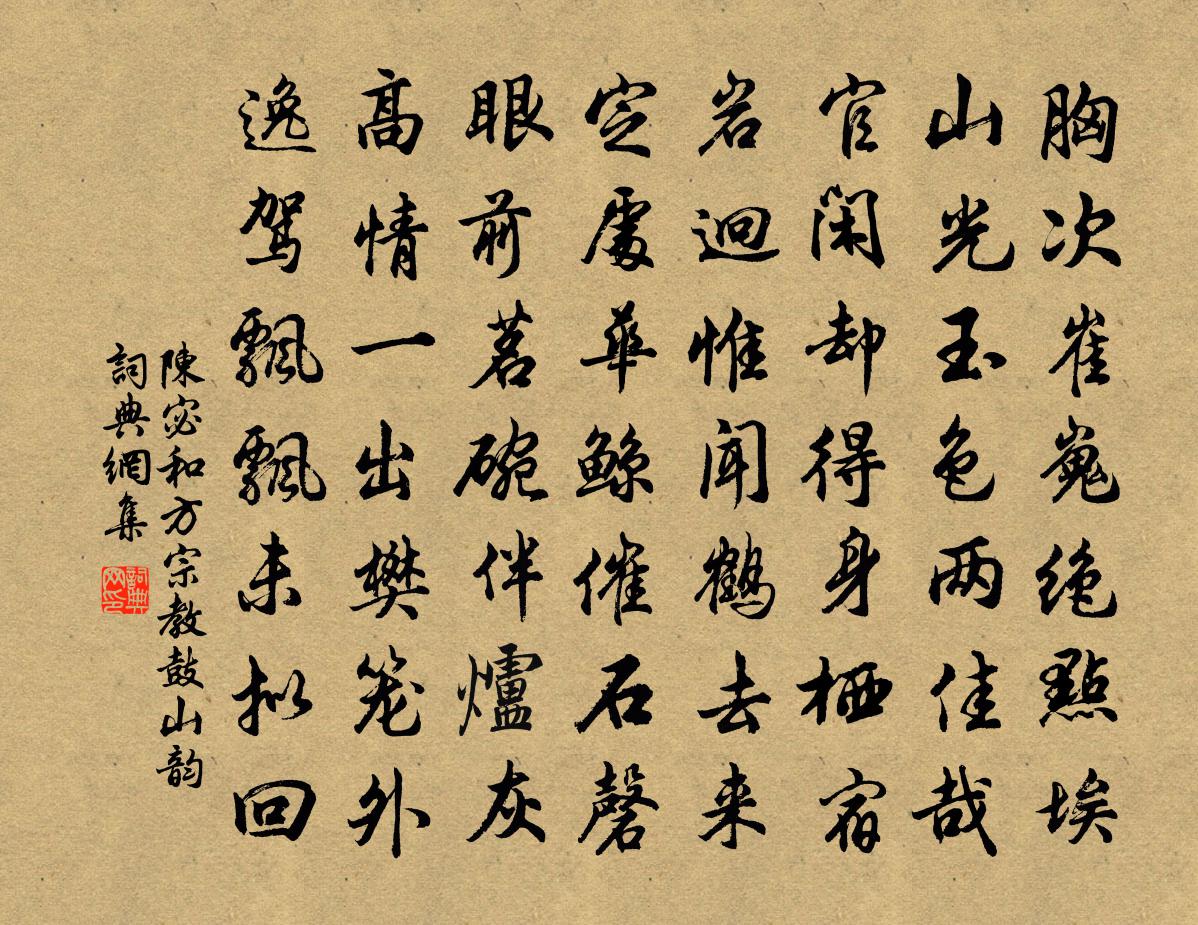 胸次崔嵬绝點埃
山光玉色两佳哉
官闲却得身栖宿
岩迥惟闻鹤去来
定處華鲸催石磬
眼前茗碗伴爐灰
高情一出樊笼外
逸驾飄飄未拟回
陳宓和方宗教鼓山韵
詞典網集
詞典网印